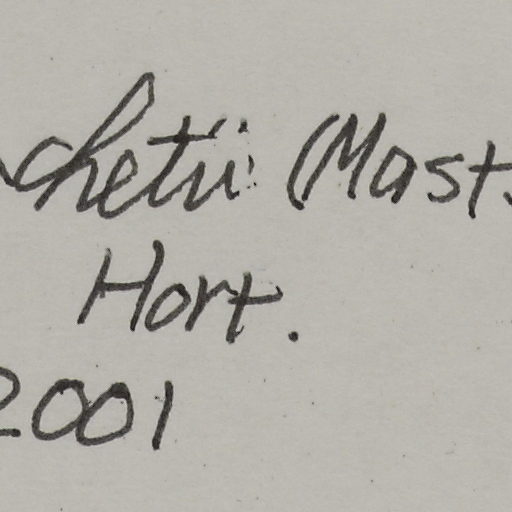 chetii (Mast.
Hort.
2001